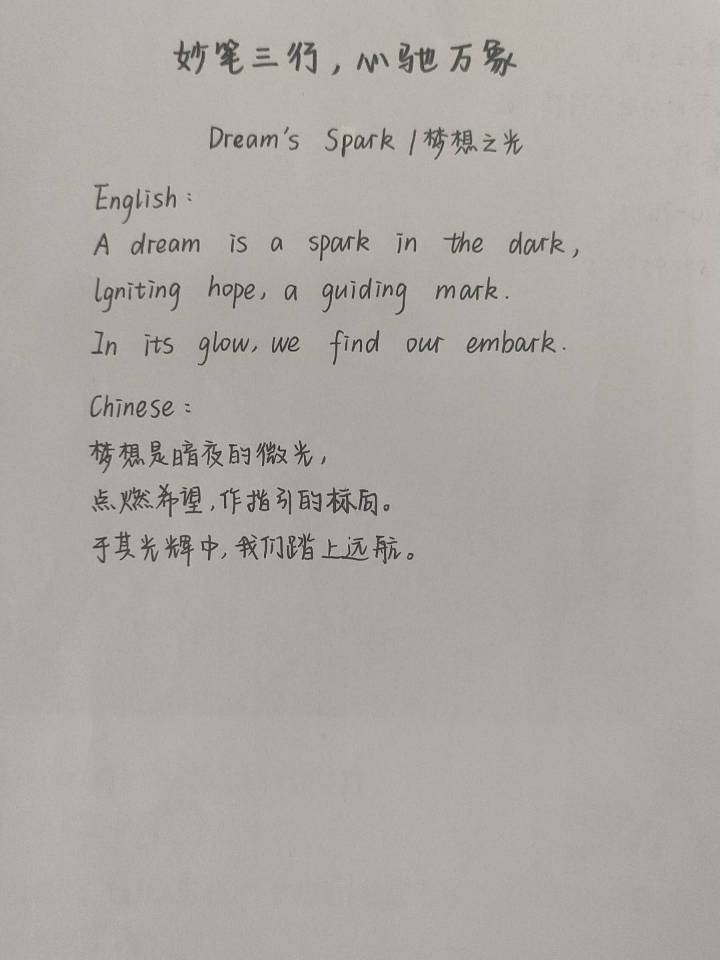 妙笔三行，心驰万象
Dream's Spark / 梦想之光
English:
A dream is a spark in the dark,
Igniting hope, a guiding mark.
In its glow, we find our embark.
Chinese:
梦想是暗夜的微光，
点燃希望，作指引的标向。
于其光辉中，我们踏上远航。